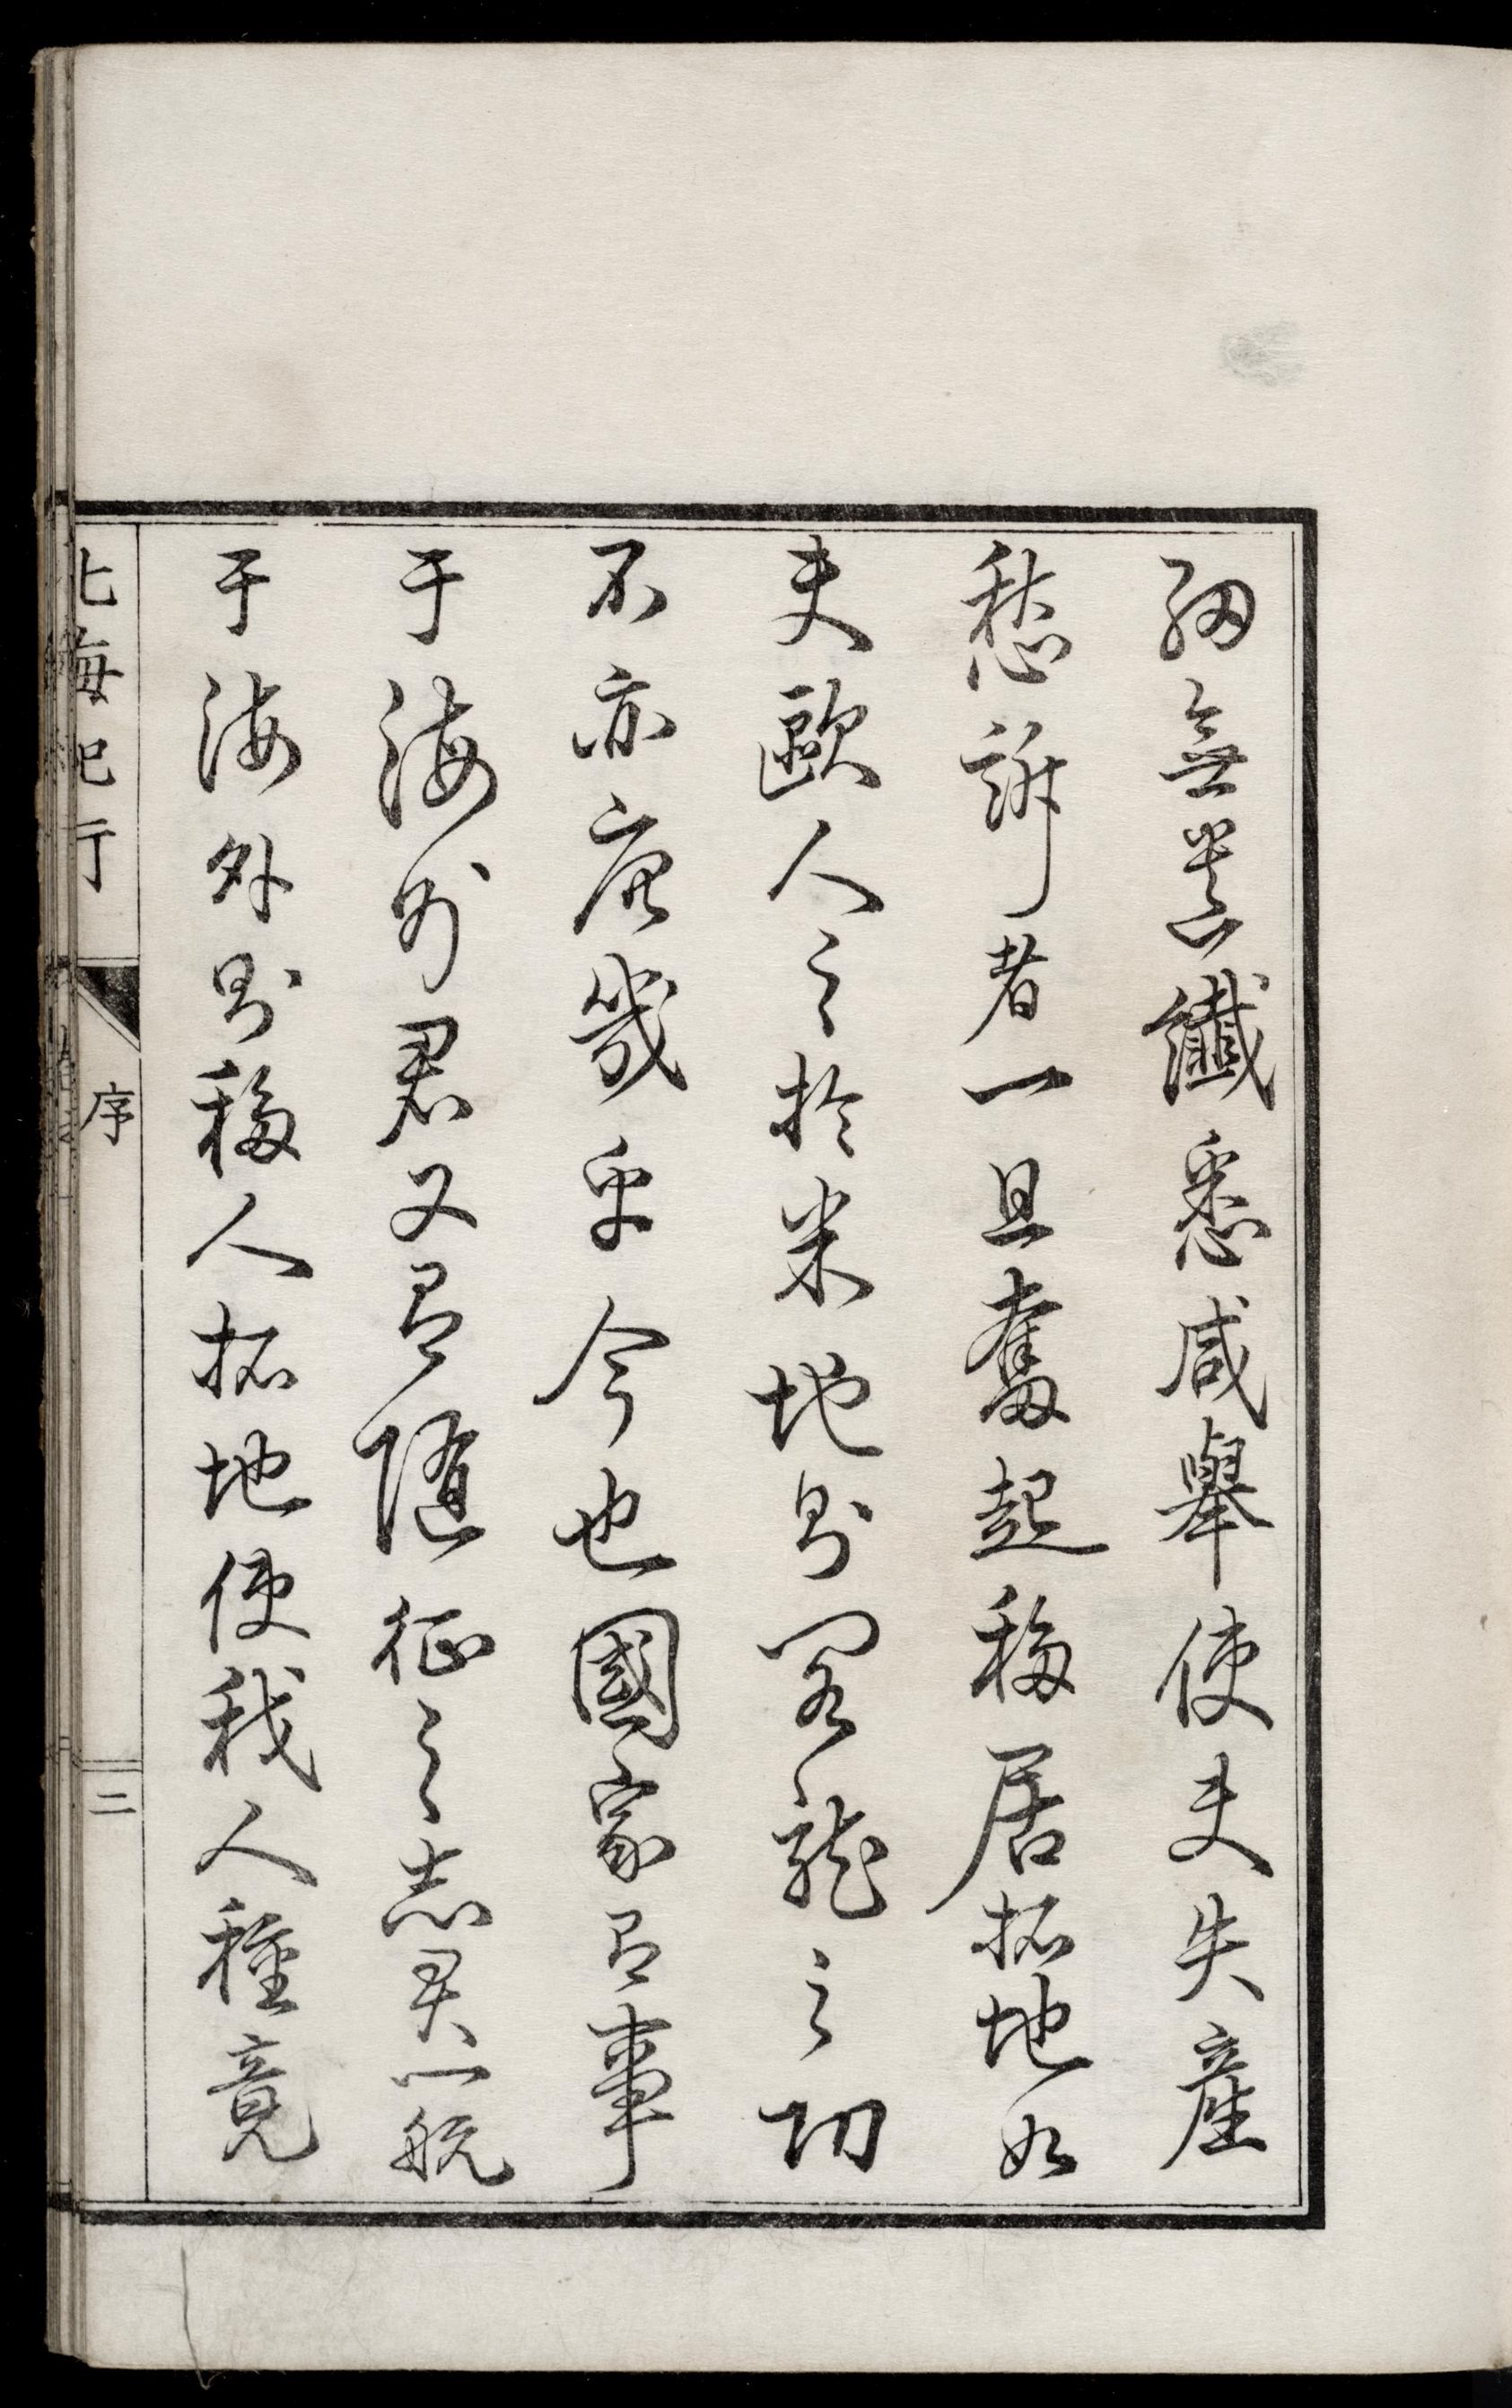 細無纖悉咸舉使夫失產
愁訴者一旦奮起移居拓地如
夫歐人之於米地則閣龍之功
不亦庶幾乎今也國家有事
于海外君又有隨征之志君一航
于海外則移人拓地使我人種竟
北海紀行 序 二